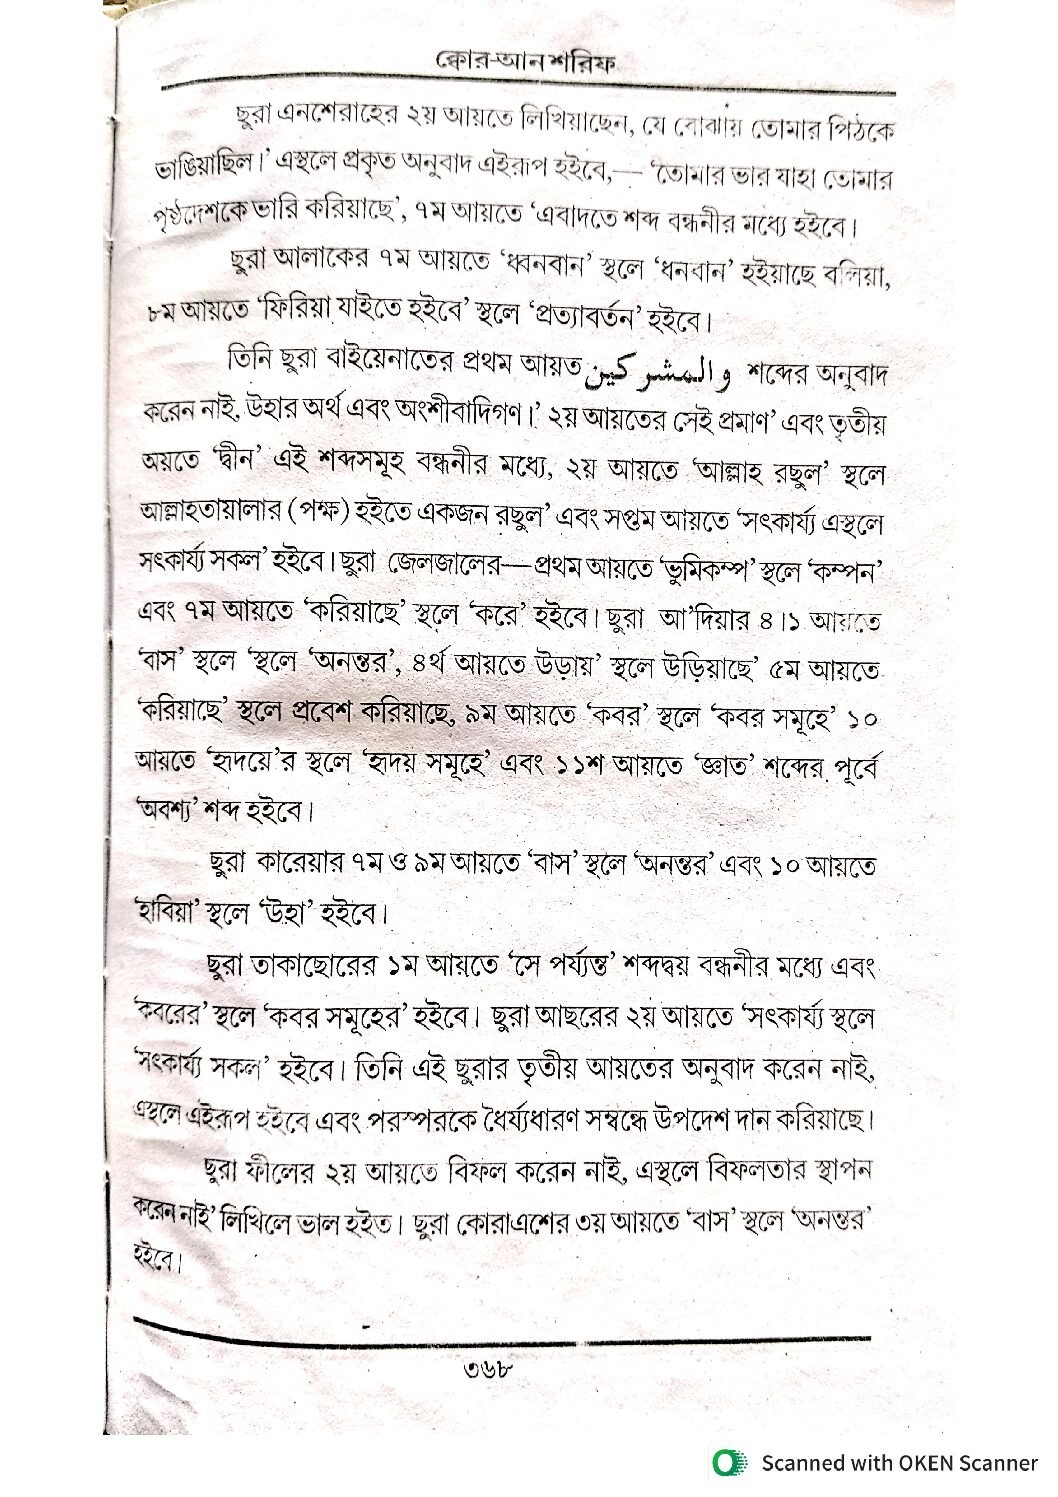 ক্বোর-আন শরিফ
ছুরা এনশেরাহের ২য় আয়তে লিখিয়াছেন, যে বোঝায় তোমার পিঠকে
ভাঙিয়াছিল।’ এস্থলে প্রকৃত অনুবাদ এইরূপ হইবে,— ‘তোমার ভার যাহা তোমার
পৃষ্ঠদেশকে ভারি করিয়াছে’, ৭ম আয়তে ‘এবাদতে শব্দ বন্ধনীর মধ্যে হইবে।
ছুরা আলাকের ৭ম আয়তে ‘ধ্বনবান’ স্থলে ‘ধনবান’ হইয়াছে বলিয়া,
৮ম আয়তে ‘ফিরিয়া যাইতে হইবে’ স্থলে ‘প্রত্যাবর্তন’ হইবে।
তিনি ছুরা বাইয়েনাতের প্রথম আয়ত والمشركين শব্দের অনুবাদ
করেন নাই, উহার অর্থ এবং অংশীবাদিগণ।’ ২য় আয়তের সেই প্রমাণ’ এবং তৃতীয়
অয়তে ‘দ্বীন’ এই শব্দসমূহ বন্ধনীর মধ্যে, ২য় আয়তে ‘আল্লাহ রছুল’ স্থলে
আল্লাহতায়ালার (পক্ষ) হইতে একজন রছুল’ এবং সপ্তম আয়তে ‘সৎকার্য্য এস্থলে
সৎকার্য্য সকল’ হইবে। ছুরা জেলজালের—প্রথম আয়তে ‘ভুমিকম্প’ স্থলে ‘কম্পন’
এবং ৭ম আয়তে ‘করিয়াছে’ স্থলে ‘করে’ হইবে। ছুরা আ’দিয়ার ৪।১ আয়তে
‘বাস’ স্থলে ‘স্থলে ‘অনন্তর’, ৪র্থ আয়তে উড়ায়’ স্থলে উড়িয়াছে’ ৫ম আয়তে
‘করিয়াছে’ স্থলে প্রবেশ করিয়াছে, ৯ম আয়তে ‘কবর’ স্থলে ‘কবর সমূহে’ ১০
আয়তে ‘হৃদয়ে’র স্থলে ‘হৃদয় সমূহে’ এবং ১১শ আয়তে ‘জ্ঞাত’ শব্দের পূর্বে
‘অবশ্য’ শব্দ হইবে।
ছুরা কারেয়ার ৭ম ও ৯ম আয়তে ‘বাস’ স্থলে ‘অনন্তর’ এবং ১০ আয়তে
‘হাবিয়া’ স্থলে ‘উহা’ হইবে।
ছুরা তাকাছোরের ১ম আয়তে ‘সে পর্য্যন্ত’ শব্দদ্বয় বন্ধনীর মধ্যে এবং
‘কবরের’ স্থলে ‘কবর সমূহের’ হইবে। ছুরা আছরের ২য় আয়তে ‘সৎকার্য্য স্থলে
‘সৎকার্য্য সকল’ হইবে। তিনি এই ছুরার তৃতীয় আয়তের অনুবাদ করেন নাই,
এস্থলে এইরূপ হইবে এবং পরস্পরকে ধৈর্য্যধারণ সম্বন্ধে উপদেশ দান করিয়াছে।
ছুরা ফীলের ২য় আয়তে বিফল করেন নাই, এস্থলে বিফলতার স্থাপন
করেন নাই’ লিখিলে ভাল হইত। ছুরা কোরাএশের ৩য় আয়তে ‘বাস’ স্থলে ‘অনন্তর’
হইবে।
৩৬৮
Scanned with OKEN Scanner